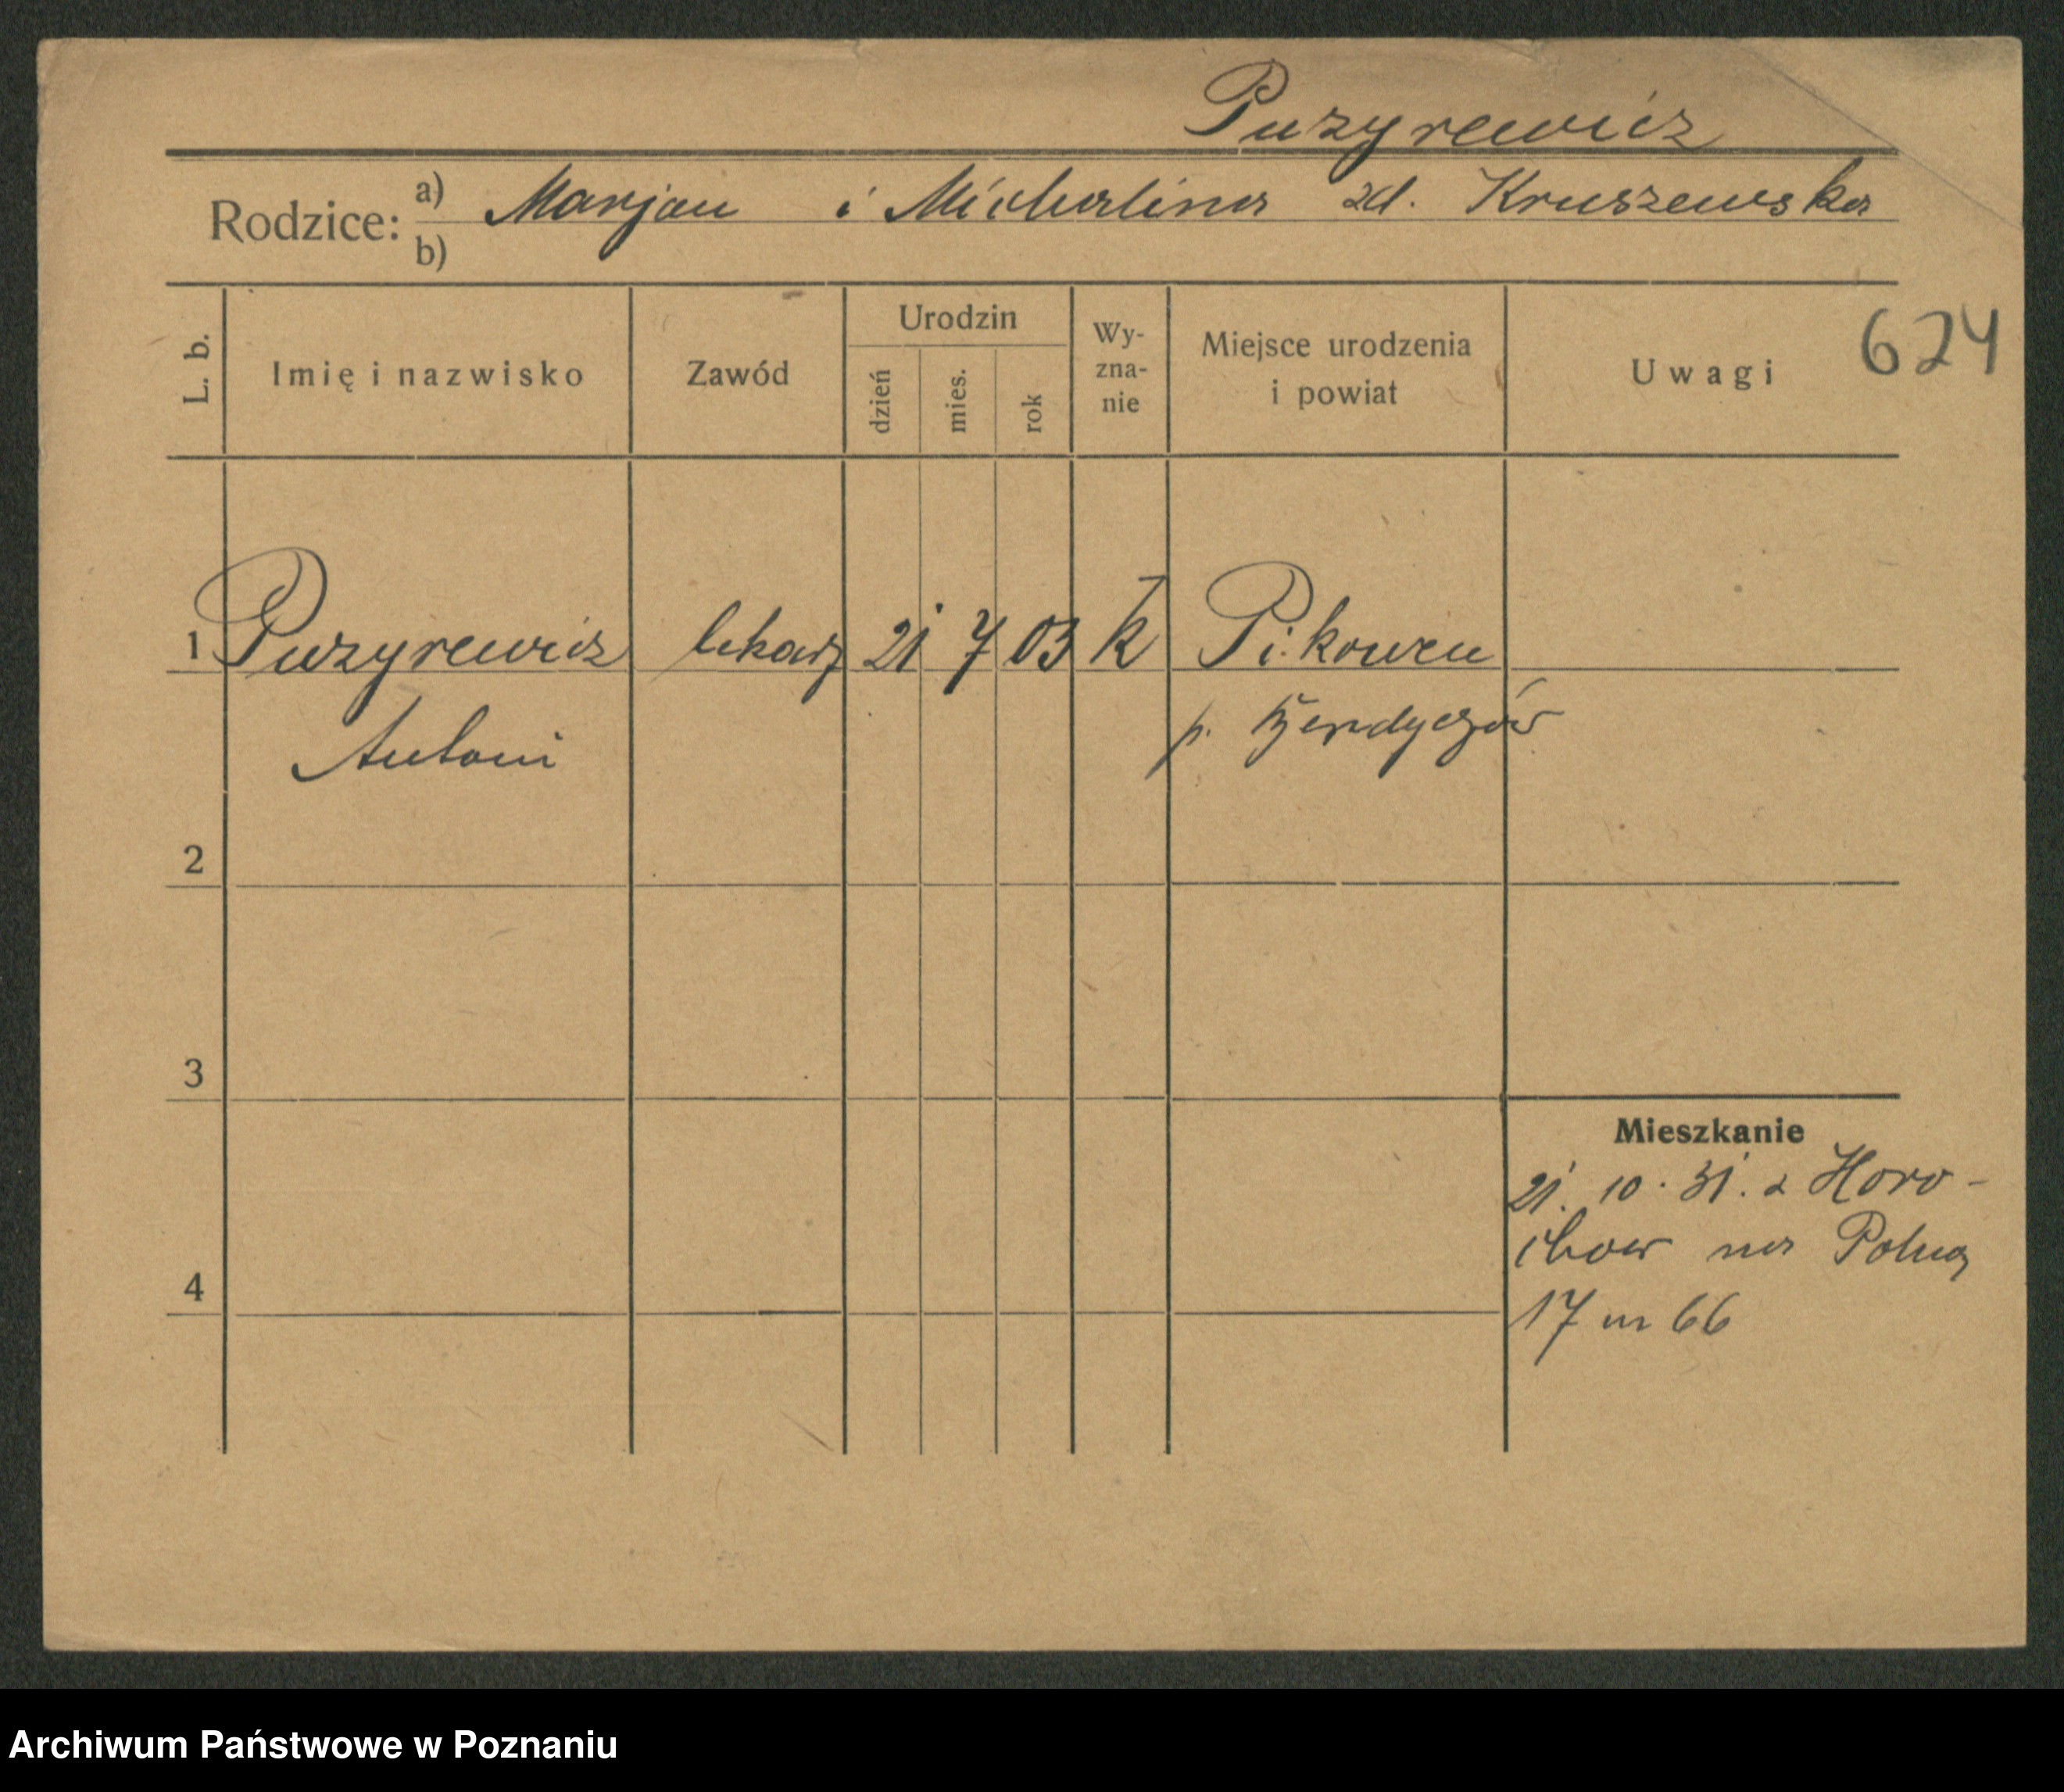 Puzyrewicz
Rodzice: a) Marjan i Michalina zd. Kruszewska
b)
L. b. Imię i nazwisko Zawód Urodzin dzień mies. rok Wy-zna-nie Miejsce urodzenia i powiat Uwagi 624
1 Puzyrewicz lekarz 21 7 03 k
Antoni p. Berdyczów
2
3
Mieszkanie
21. 10. 31. z Horo-
chow na Polną
4
17 m 66
Archiwum Państwowe w Poznaniu